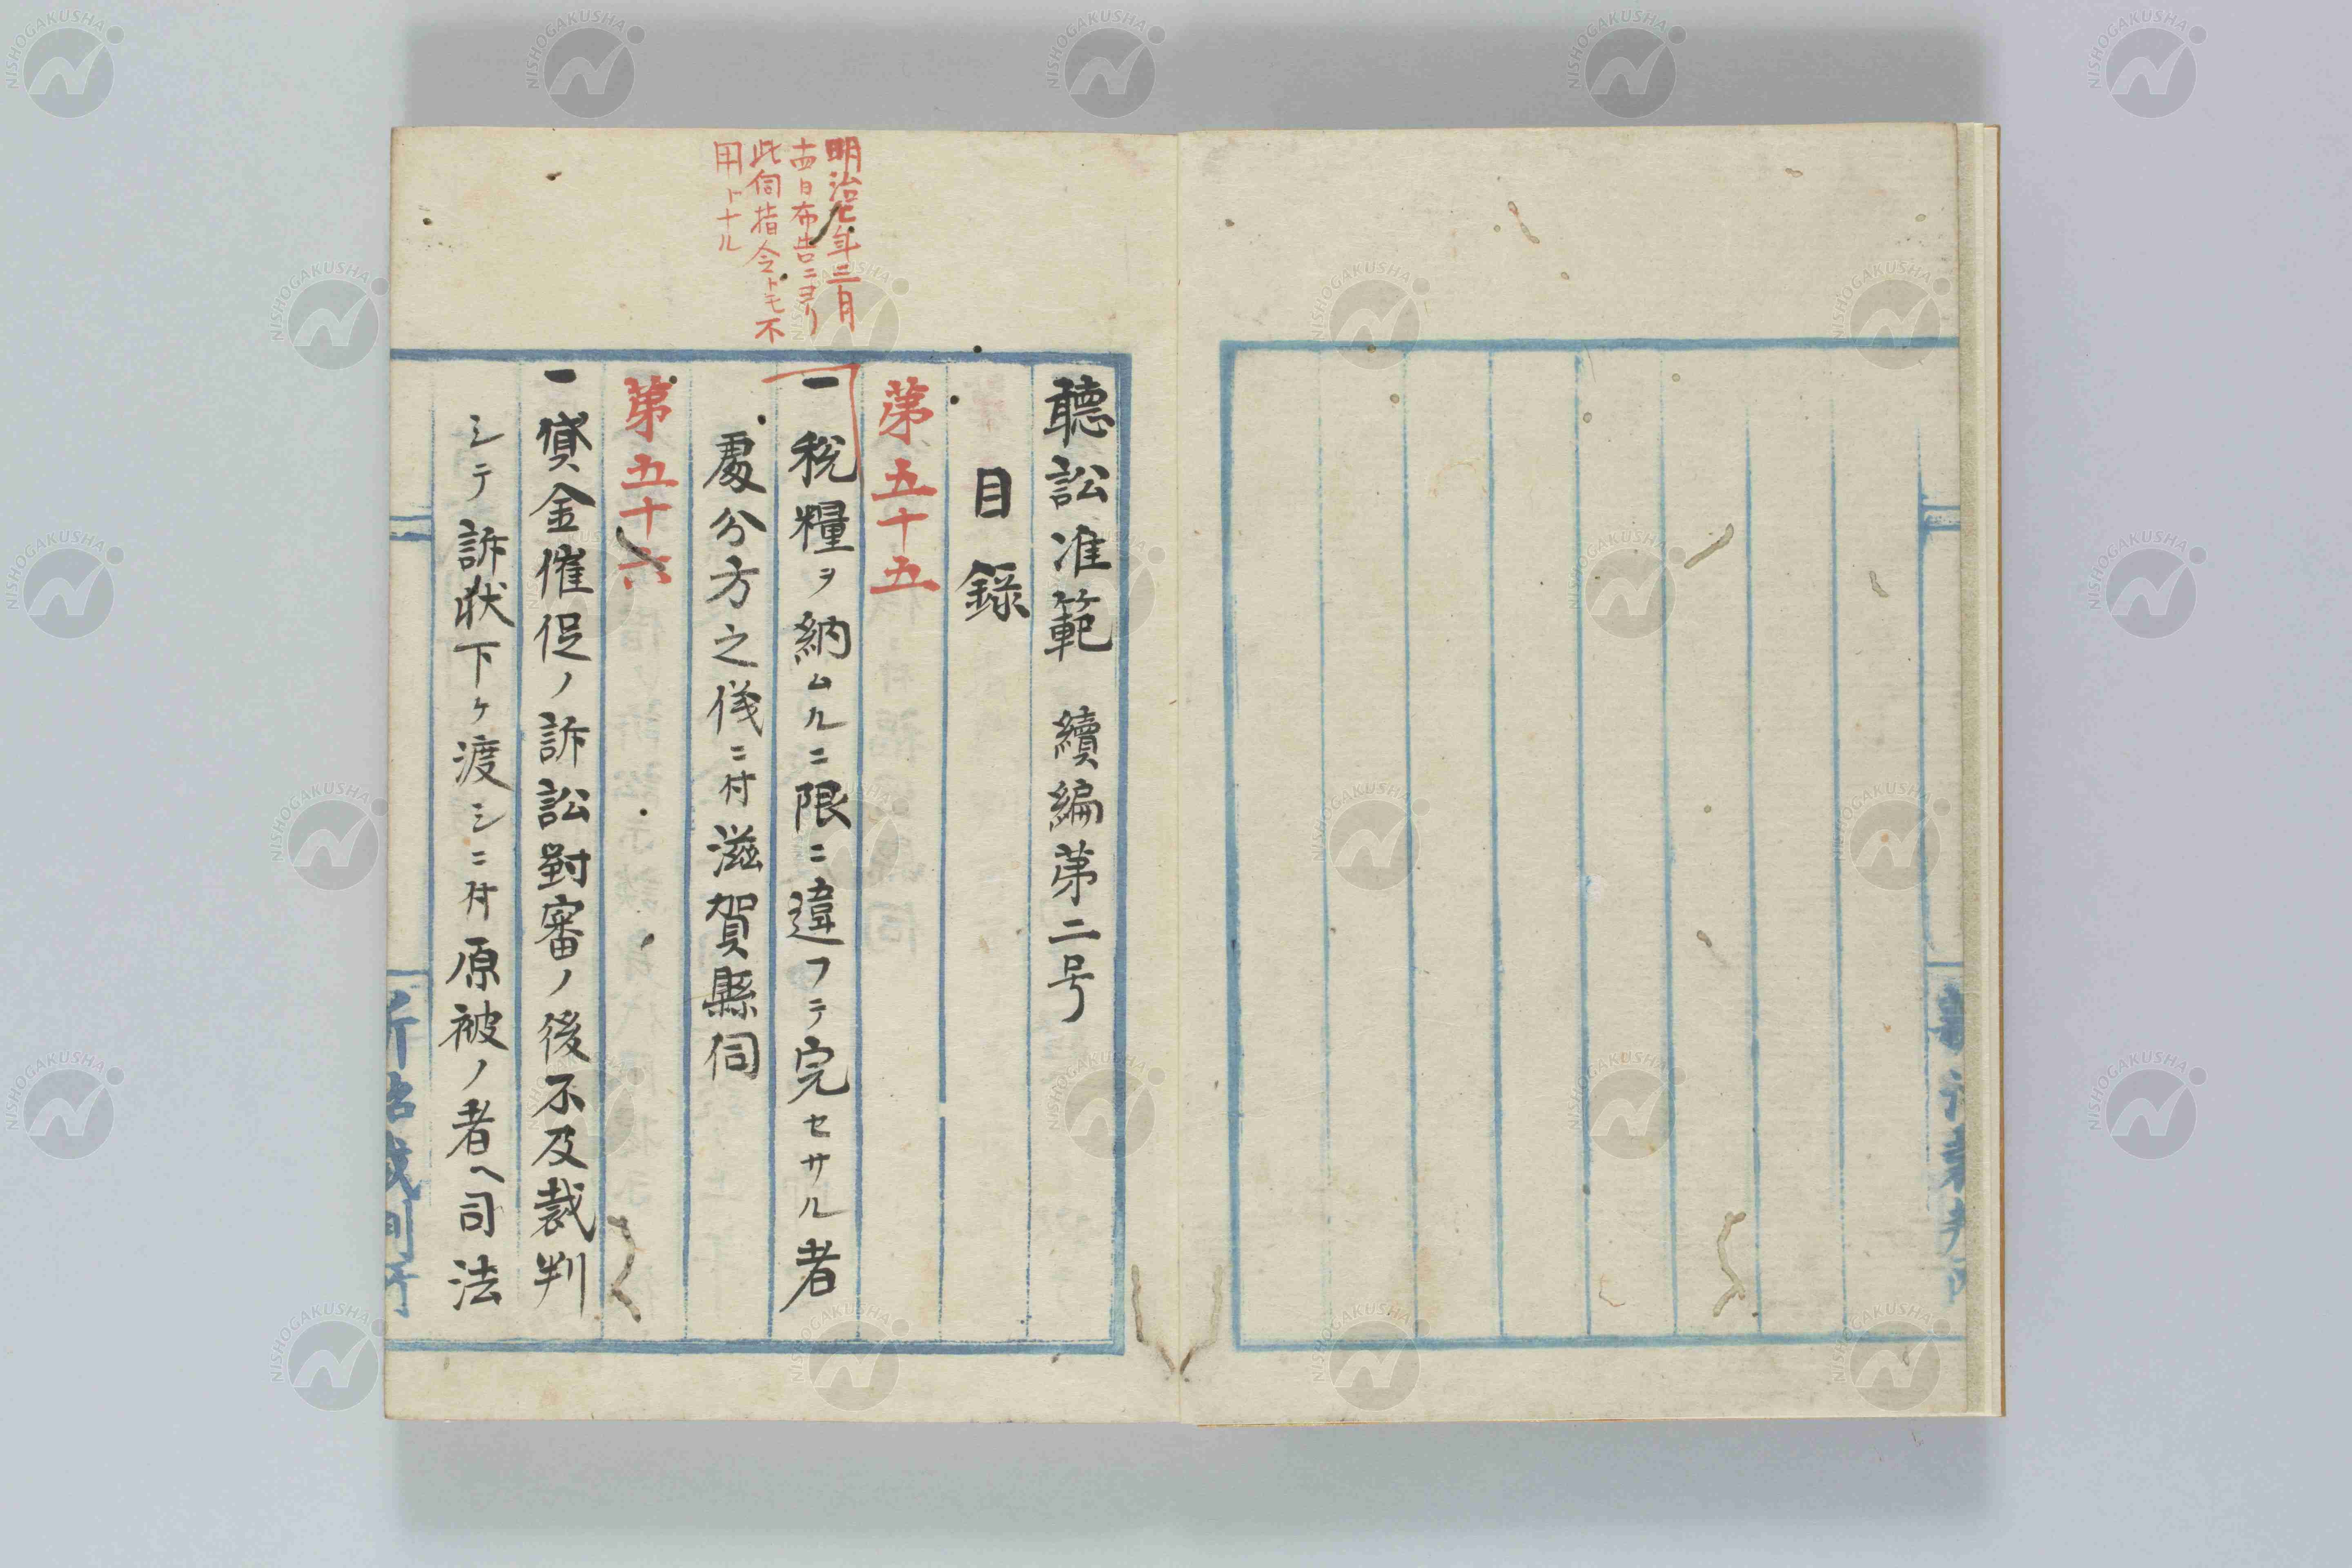 聽訟准範 續編第二号
目録
第五十五
一 税糧ヲ納ムルニ限ニ違フテ完セサル者
處分方之儀ニ付滋賀縣伺
第五十六
一 貸金催促ノ訴訟對審ノ後不及裁判
シテ訴状下ケ渡シニ付原被ノ者ヘ司法
明治 年三月
十四日布告ニヨリ
此伺指令トモ不
用トナル
新治裁判所
新治裁判所
NISHOGAKUSHA